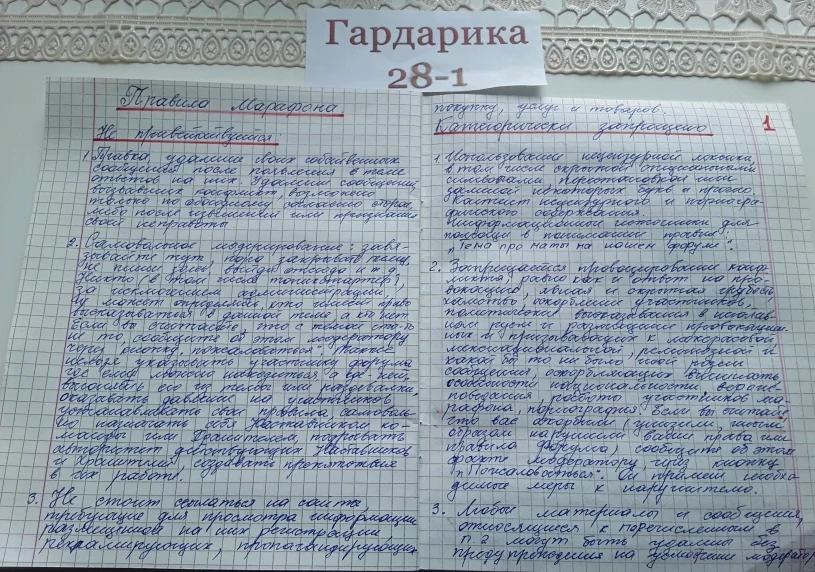 Гардарика
28-1
Правила Марафона
Не приветствуется:
1. Правка, удаление своих собственных
сообщений после появления в теме
ответов на них. Удаление сообщений,
вызвавших конфликт, возможно
только по обоюдному согласию сторон,
либо после извинения или признания
своей неправоты
2. Самовольное модерирование: завя-
зывайте тут, пора закрывать тему,
не пиши здесь, выйди отсюда и т.д.
Никто (в том числе топикстартер),
за исключением администрации,
не может определять, кто имеет право
высказываться в данной теме, а кто нет.
Если вы считаете, что с темой что-то
не то, сообщите об этом модератору
через кнопку "пожаловаться". Также
нельзя указывать участнику форума
где ему можно находиться, а где нет,
выгонять его из темы или раздевалки,
оказывать давление на участников,
устанавливать свои правила, самоволь-
но назначать себя Наставником ко-
манды или Хранителем, подрывать
авторитет действующих Наставников
и Хранителей, создавать препятствия
в их работе.
3. Не стоит ссылаться на сайты,
требующие для просмотра информации
размещенной на них регистрации
рекламирующих, пропагандирующих
покупку, услуг и товаров.
Категорически запрещено
1
1. Использование нецензурной лексики,
в том числе скрытой специальными
символами, перестановкой или
заменой некоторых букв и прочего.
Контент нецензурного и порногра-
фического содержания.
Информационные источники для
помощи в понимании правил:
"Тема про маты на нашем форуме".
2. Запрещается провоцирование конф-
ликта, равно как и ответ на про-
вокацию, явная и скрытая грубость,
хамство, оскорбление участников,
политические высказывания в
и размещение провокацион-
ных и призывающих к межрасовой,
межнациональной, религиозной и
какой бы то ни было иной розни
сообщений оскорбляющих
особенности национальности,
поведания, работы участников ма-
рафона, порнография. Если вы считаете,
что вас оскорбили (унизили, иным
образом нарушили ваши права или
правила Форума), сообщите об этом
факте модератору через кнопку
"Пожаловаться". Он примет необхо-
димые меры к нарушителю.
3. Любой материалы и сообщения,
относящиеся к перечисленным в
п 2 могут быть удалены без
предупреждения на усмотрение модератор